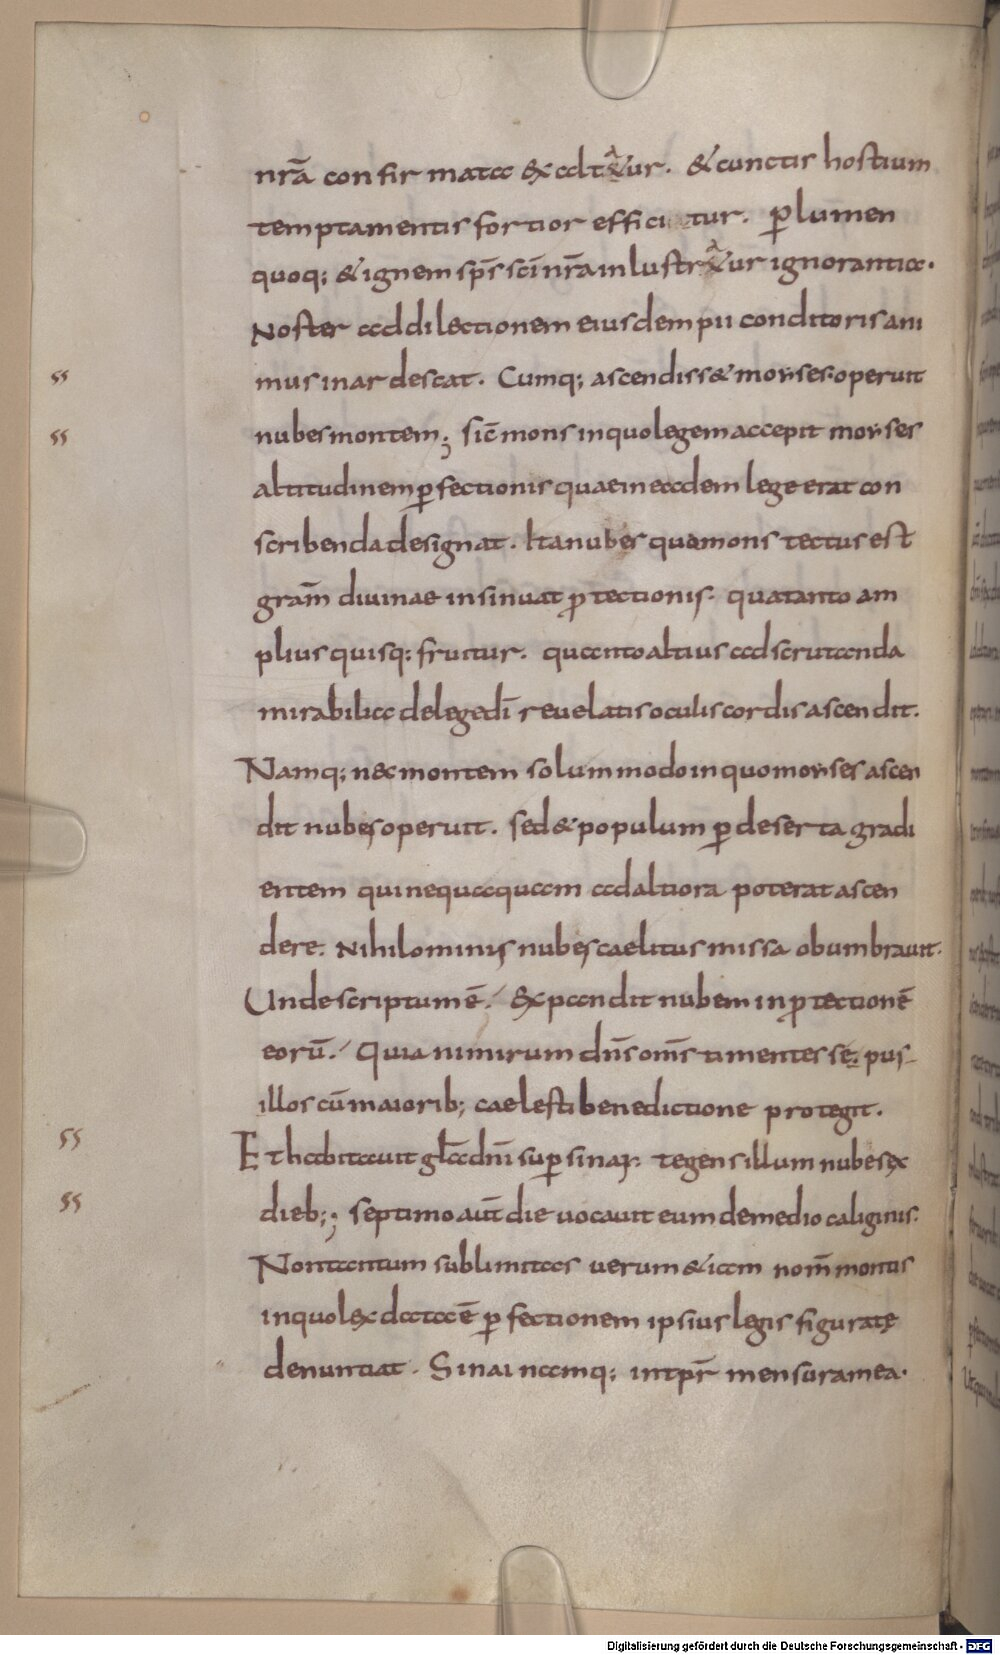 nr̄a confirmata exaltatur. & cunctis hostium
temptamentis fortior efficitur. p̄ lumen
quoq; & ignem sp̄s sc̄i nr̄a inlustratur ignorantia.
Noster ad dilectionem eiusdem pii conditoris ani
mus inardescat. Cumq; ascendiss& moyses. operuit
nubes montem; sic̄ mons in quo legem accepit moyses
altitudinem p̄fectionis quae in eadem lege erat con
scribenda designat. Ita nubes qua mons tectus est
gram̄ diuinae insinuat p̄tectionis. qua tanto am
plius quisq; fruitur. quanto altius ad scrutanda
mirabilia de lege dī reuelatis oculis cordis ascendit.
Namq; nec montem solummodo in quo moyses ascen
dit nubes operuit. sed & populum p̄ deserta gradi
entem qui nequaquam ad altiora poterat ascen
dere. Nihilominus nubes caelitus missa obumbrauit.
Unde scriptum ē. Expandit nubem in p̄tectionē
eorū. Quia nimirum dn̄s om̄s timentes se. pus
illos cū maiorib; caelesti benedictione protegit.
Et habitauit gl̄a dn̄i sup̄ sinai. tegens illum nube sex
dieb;; septimo aut̄ die uocauit eum de medio caliginis.
Non tantum sublimitas uerum & iam nom̄ montis
in quo lex data ē p̄fectionem ipsius legis figuratę
denuntiat. Sinai namq; intp̄r̄ mensura mea.
Digitalisierung gefördert durch die Deutsche Forschungsgemeinschaft - DFG